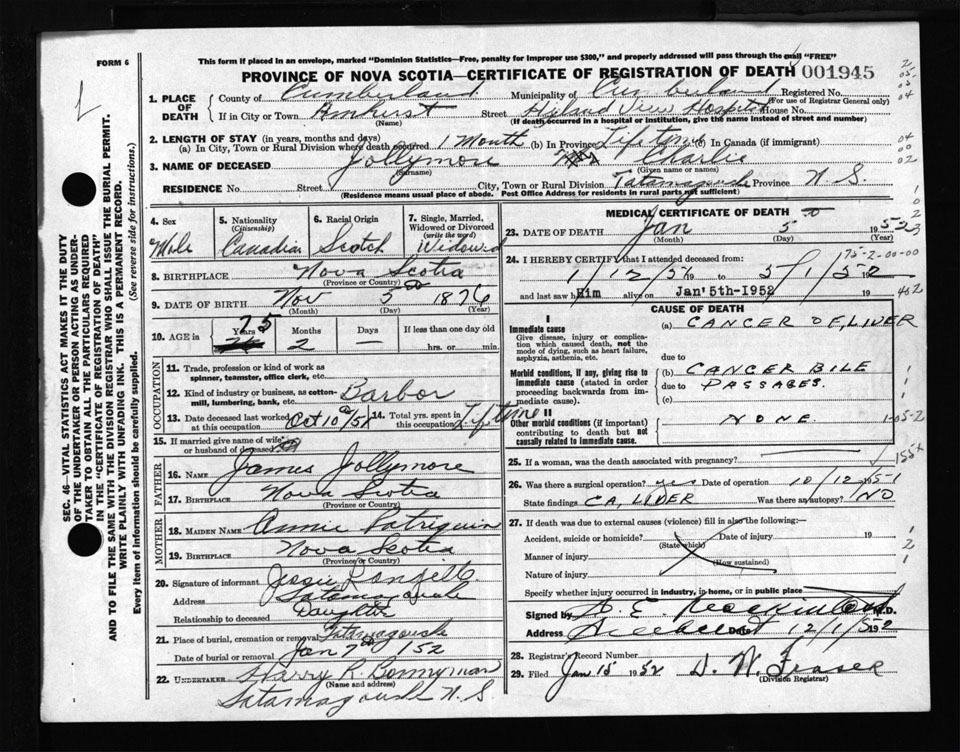 This form if placed in an envelope, marked "Dominion Statistics—Free, penalty for improper use $300," and properly addressed will pass through the mail "FREE"
FORM 6
PROVINCE OF NOVA SCOTIA—CERTIFICATE OF REGISTRATION OF DEATH 001945
1. PLACE OF DEATH County of Cumberland Municipality of Cumberland Registered No.
(For use of Registrar General only)
If in City or Town Amherst Street Highland View Hospital House No.
(Name) (If death occurred in a hospital or institution, give the name instead of street and number)
2. LENGTH OF STAY (in years, months and days)
(a) In City, Town or Rural Division where death occurred 1 Month (b) In Province Life time (c) In Canada (if immigrant)
3. NAME OF DECEASED Jollymore Charlie
(Surname) (Given name or names)
RESIDENCE No. Street City, Town or Rural Division Tatamagouche Province N S
(Residence means usual place of abode. Post Office Address for residents in rural parts not sufficient)
4. Sex Male
5. Nationality (Citizenship) Canadian
6. Racial Origin Scotch
7. Single, Married, Widowed or Divorced (write the word) Widowed
8. BIRTHPLACE Nova Scotia
(Province or Country)
9. DATE OF BIRTH Nov 5 1876
(Month) (Day) (Year)
10. AGE in Years 75 Months 2 Days — If less than one day old hrs. or min.
OCCUPATION
11. Trade, profession or kind of work as spinner, teamster, office clerk, etc.
12. Kind of industry or business, as cotton-mill, lumbering, bank, etc. Barbor
13. Date deceased last worked at this occupation Oct 10/51
14. Total yrs. spent in this occupation Lifetime
15. If married give name of wife or husband of deceased
FATHER
16. NAME James Jollymore
17. BIRTHPLACE Nova Scotia
(Province or Country)
MOTHER
18. MAIDEN NAME Annie Patriquin
19. BIRTHPLACE Nova Scotia
(Province or Country)
20. Signature of informant Jessie
Address Tatamagouche
Relationship to deceased Daughter
21. Place of burial, cremation or removal Tatamagouche
Date of burial or removal Jan 7th 152
22. UNDERTAKER Harry R. Bonnyman
(Name and address)
Tatamagouche N. S
MEDICAL CERTIFICATE OF DEATH
23. DATE OF DEATH Jan 5 1952
(Month) (Day) (Year)
175-2-00-00
24. I HEREBY CERTIFY that I attended deceased from:
1/12/51 to 5/1/52 19
and last saw him alive on Jan' 5th-1952 19
CAUSE OF DEATH
I
Immediate cause
Give disease, injury or complication which caused death, not the mode of dying, such as heart failure, asphyxia, asthenia, etc.
(a) CANCER OF LIVER
due to
Morbid conditions, if any, giving rise to immediate cause (stated in order proceeding backwards from immediate cause).
(b) CANCER BILE
due to PASSAGES.
(c)
II
Other morbid conditions (if important) contributing to death but not causally related to immediate cause.
NONE
25. If a woman, was the death associated with pregnancy?
26. Was there a surgical operation? yes Date of operation 10/12/1951
State findings CA, LIVER Was there an autopsy? NO
27. If death was due to external causes (violence) fill in also the following:—
Accident, suicide or homicide? Date of injury 19
(State which)
Manner of injury
(How sustained)
Nature of injury
Specify whether injury occurred in industry, in home, or in public place
Signed by M.D.
Address Date 12/1/52
28. Registrar's Record Number
29. Filed Jan 15 1952 D. W. Fraser
(Division Registrar)
SEC. 46—VITAL STATISTICS ACT MAKES IT THE DUTY
OF THE UNDERTAKER OR PERSON ACTING AS UNDER-
TAKER TO OBTAIN ALL THE PARTICULARS REQUIRED
IN THE "CERTIFICATE OF REGISTRATION OF DEATH"
AND TO FILE THE SAME WITH THE DIVISION REGISTRAR WHO SHALL ISSUE THE BURIAL PERMIT.
WRITE PLAINLY WITH UNFADING INK. THIS IS A PERMANENT RECORD.
Every item of information should be carefully supplied. (See reverse side for instructions.)